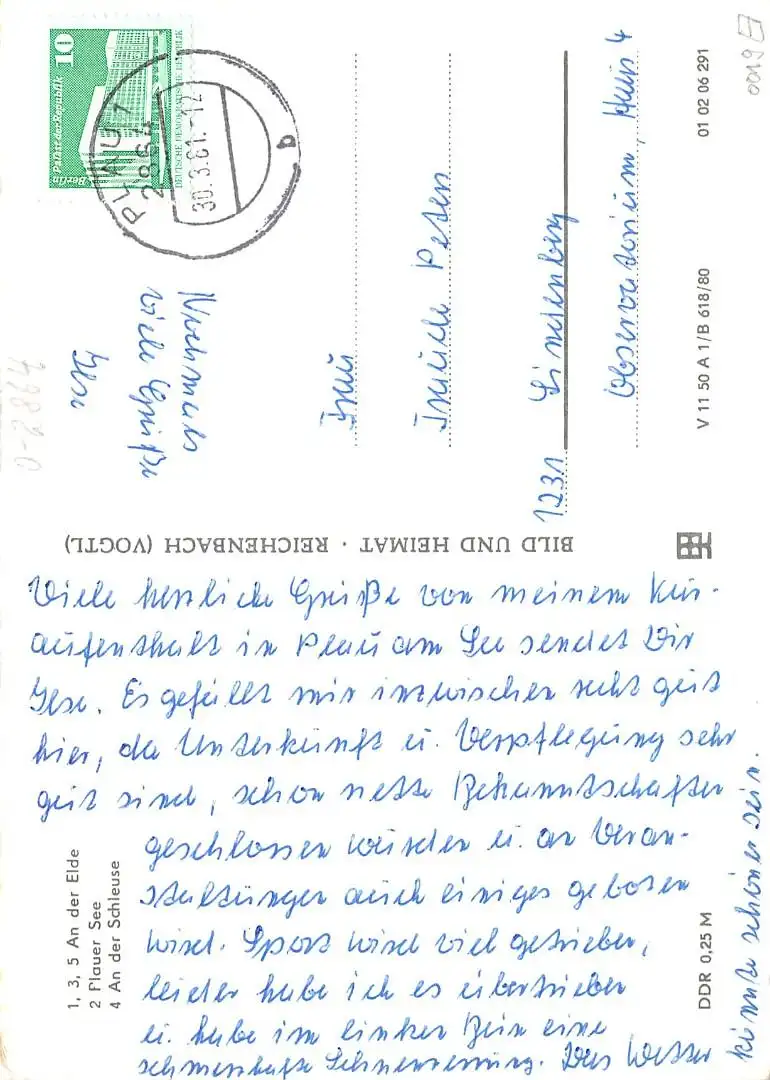 Viele herzliche Grüße von meinem Kur-
aufenthalt in Plau am See sendet Dir
Ilse. Es gefällt mir inzwischen recht gut
hier, da Unterkunft u. Verpflegung sehr
gut sind, schon nette Bekanntschaften
geschlossen wurden u. an Veran-
staltungen auch einiges geboten
wird. Sport wird viel getrieben,
leider habe ich es übertrieben
u. habe im linken Bein eine
schmerzhafte Sehnenzerrung. Das Wetter
könnte schöner sein.
Nochmals
viele Grüße
Ilse
Frau
Traude Peters
1231 Lindenberg
Observatorium, Haus 4
1, 3, 5 An der Elde
2 Plauer See
4 An der Schleuse
DDR 0,25 M
BILD UND HEIMAT · REICHENBACH (VOGTL)
V 11 50 A 1/B 618/80
01 02 06 291
10
Berlin Palast der Republik
DEUTSCHE DEMOKRATISCHE REPUBLIK
2864
30.3.81.-12
b
0-2864
0019